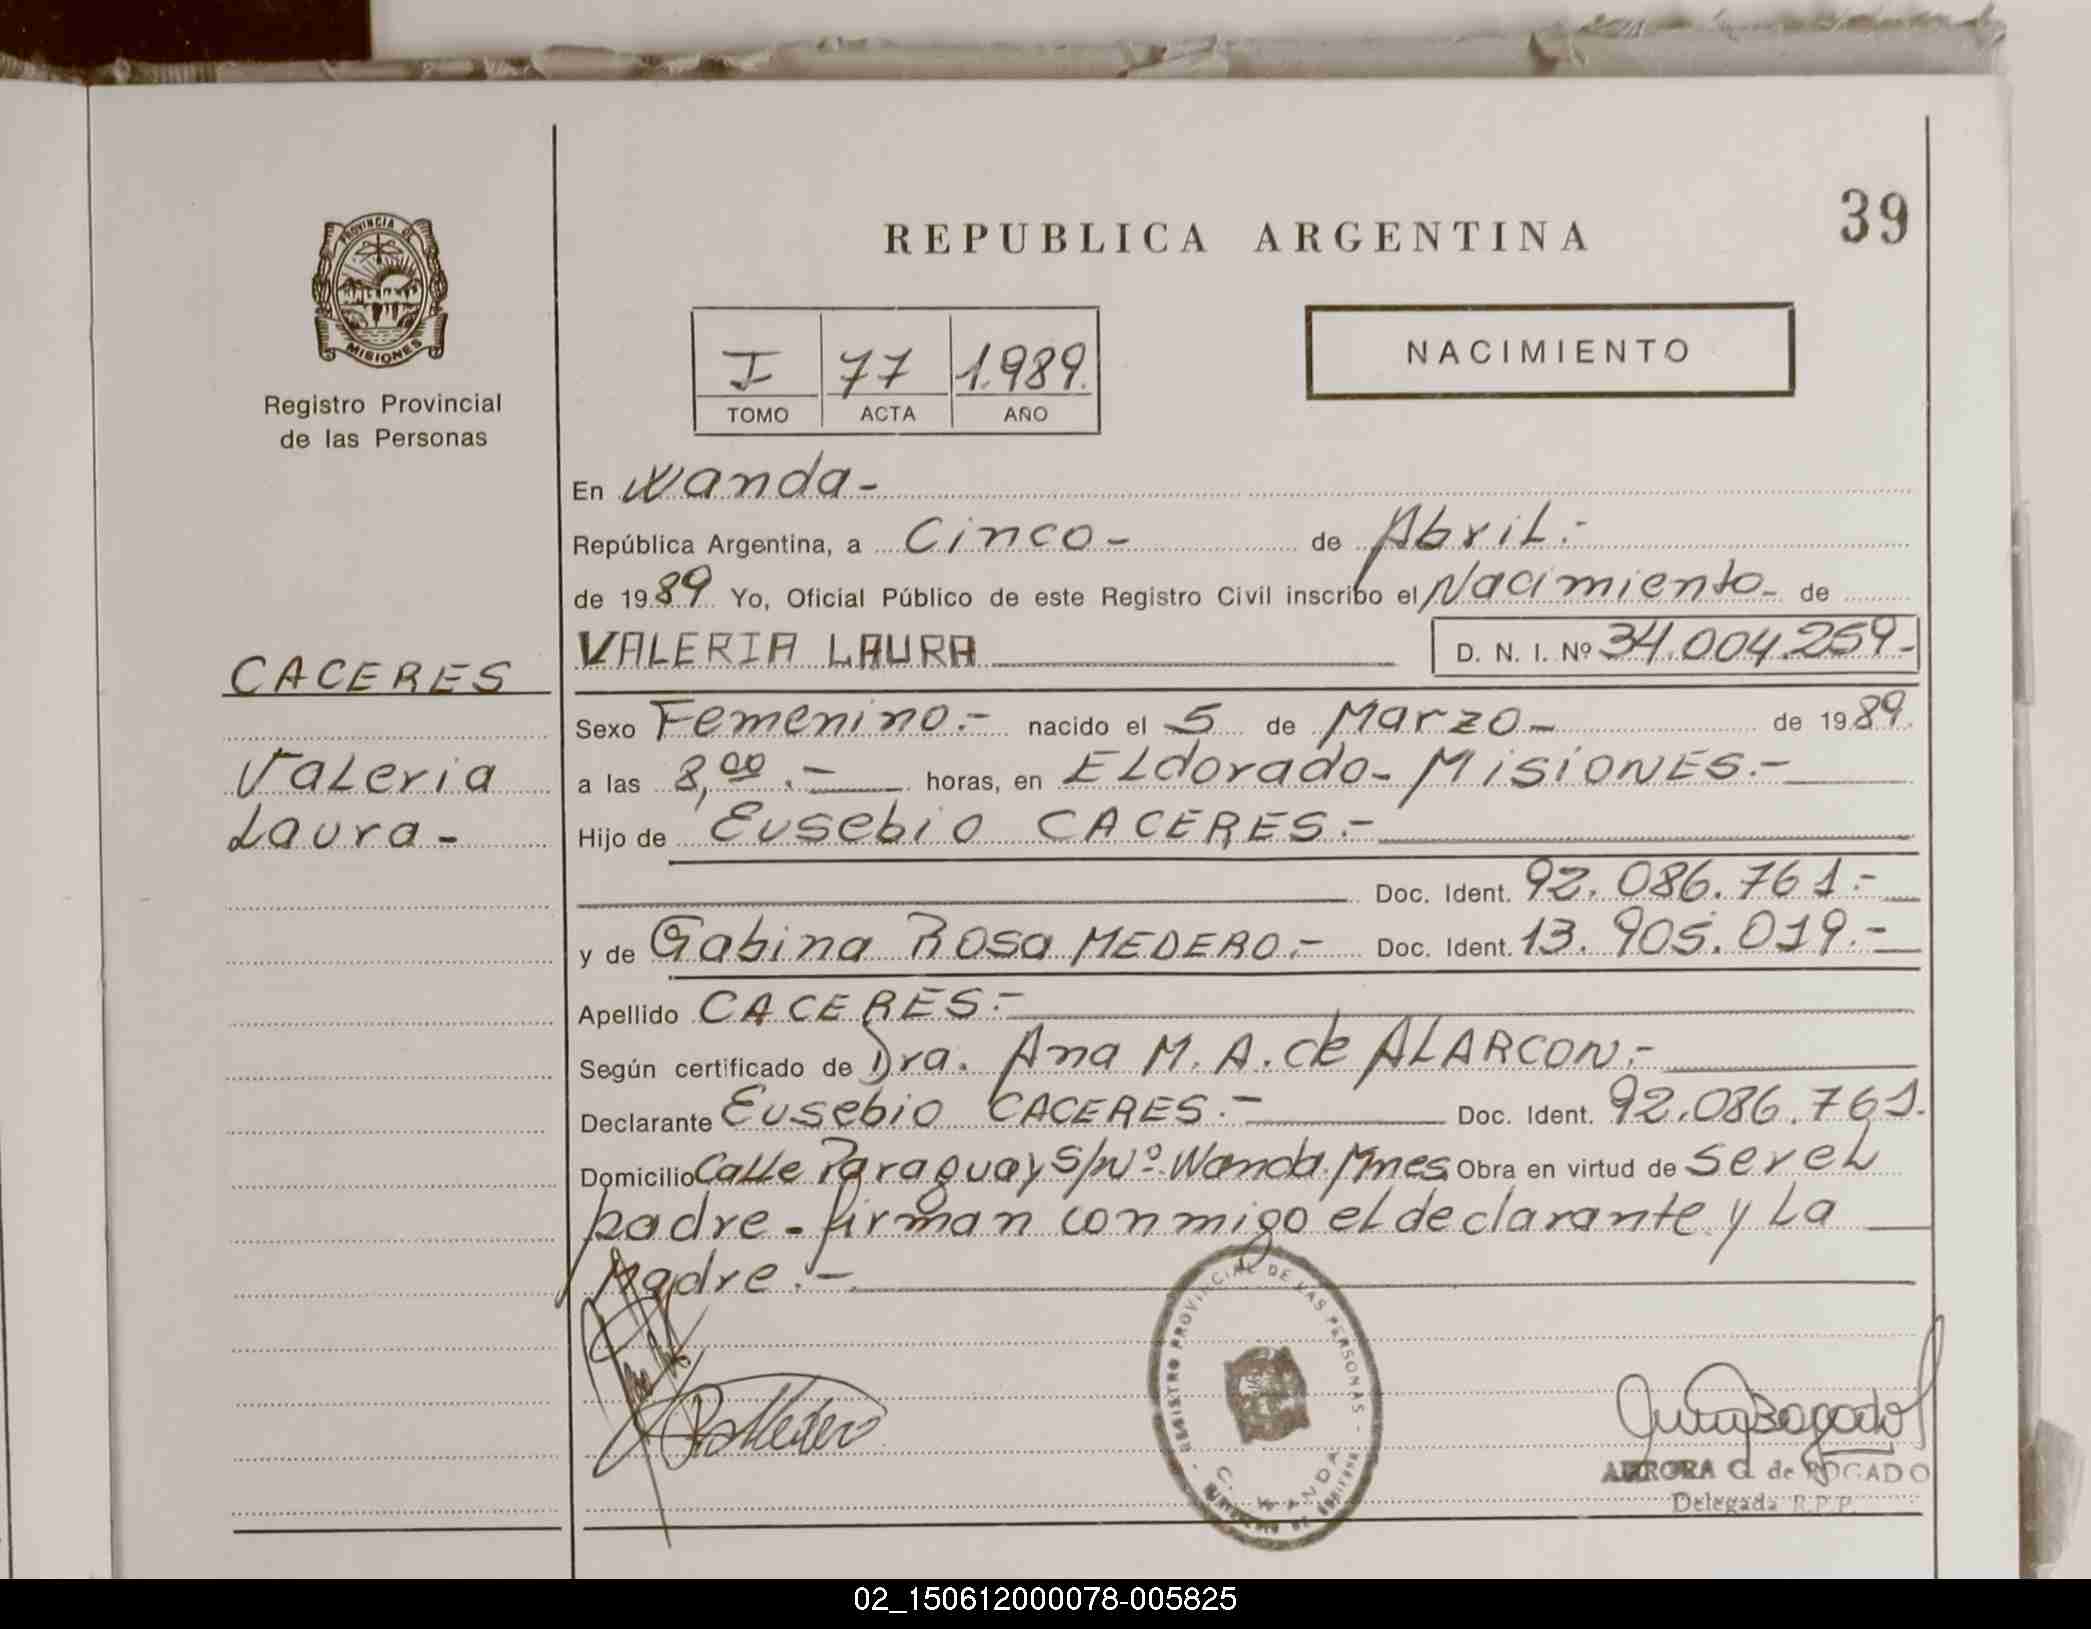 39
REPUBLICA ARGENTINA
PROVINCIA DE
MISIONES
Registro Provincial
de las Personas
I 77 1.989.
TOMO ACTA AÑO
NACIMIENTO
En Wanda-
República Argentina, a Cinco- de Abril.-
de 1989 Yo, Oficial Público de este Registro Civil inscribo el Nacimiento- de
VALERIA LAURA D. N. I. Nº 34.004.259.-
CACERES
Valeria
Laura-
Sexo Femenino.- nacido el 5 de Marzo- de 1989.
a las 8,00.- horas, en ELdorado- MISIONES.-
Hijo de Eusebio CACERES.-
Doc. Ident. 92.086.761.-
y de Gabina Rosa MEDERO.- Doc. Ident. 13.905.019.-
Apellido CACERES.-
Según certificado de Dra. Ana M. A. de ALARCON.-
Declarante Eusebio CACERES.- Doc. Ident. 92.086.761.
Domicilio Calle Paraguay S/Nº. Wanda. Mnes Obra en virtud de ser el
padre - firman conmigo el declarante y La
Madre.-
REGISTRO PROVINCIAL DE LAS PERSONAS
WANDA
AURORA G. de BOGADO
Delegada R.P.P.
02_150612000078-005825